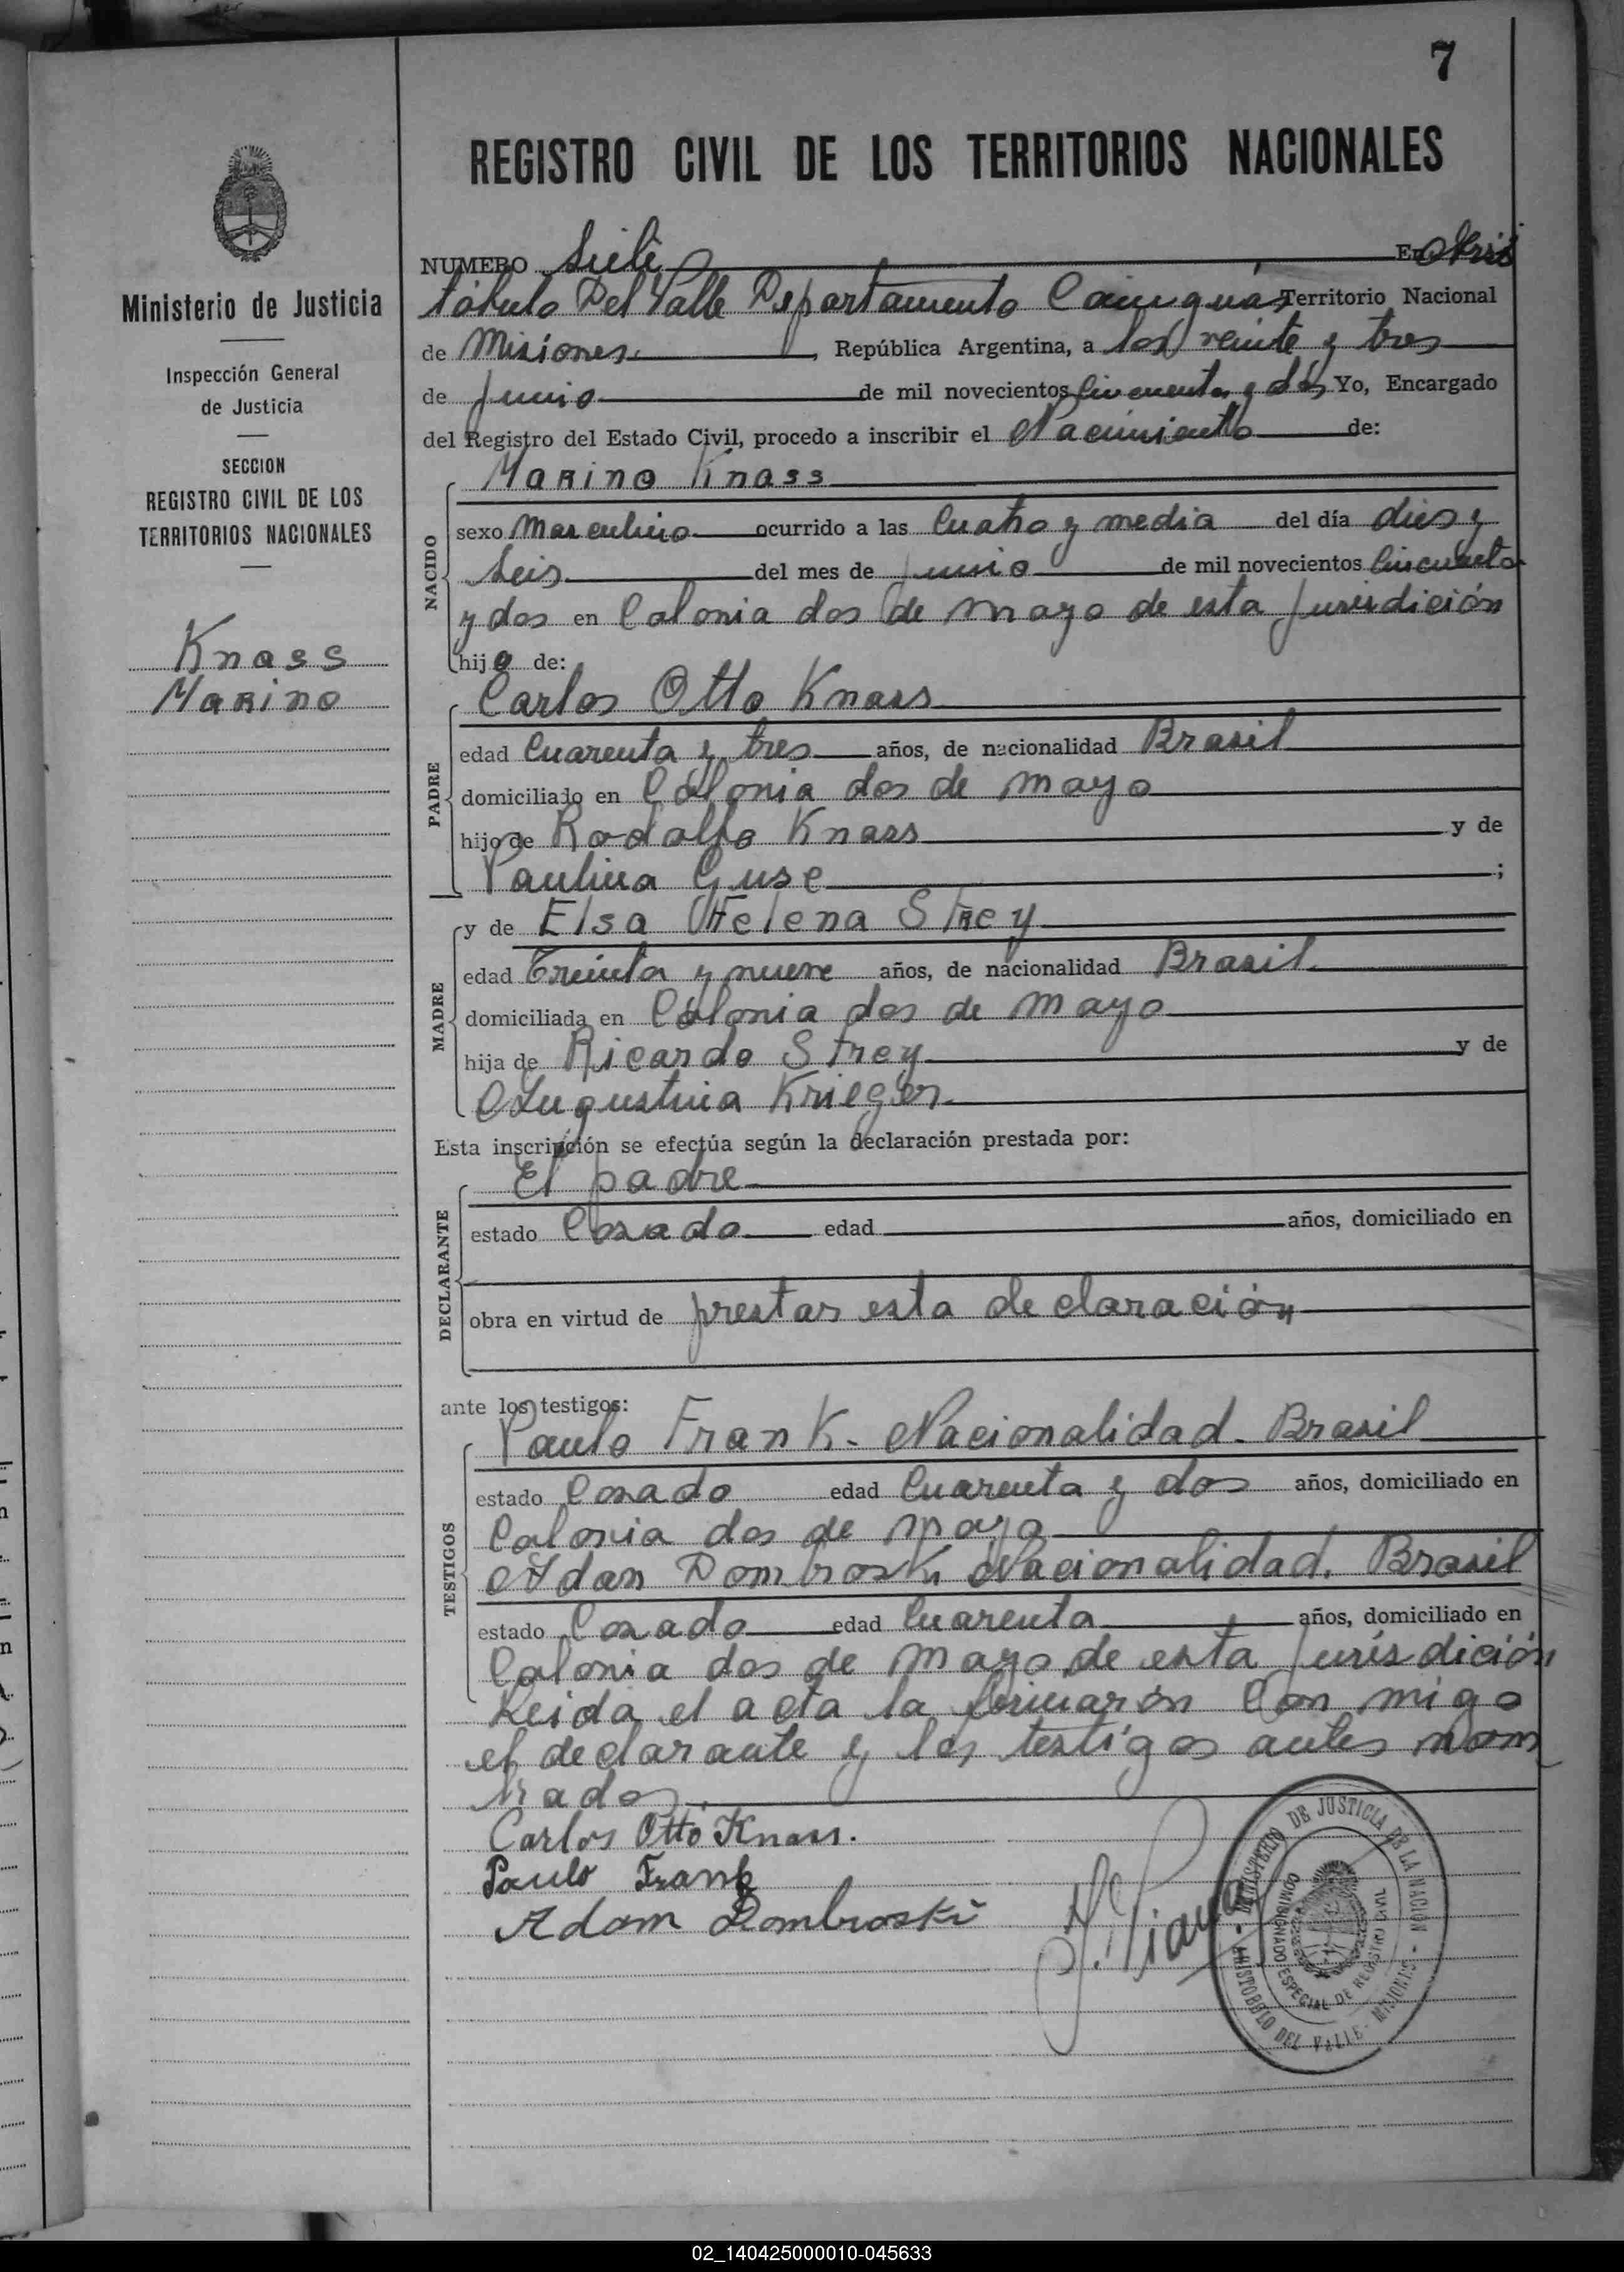 7
REGISTRO CIVIL DE LOS TERRITORIOS NACIONALES
Ministerio de Justicia
Inspección General
de Justicia
SECCION
REGISTRO CIVIL DE LOS
TERRITORIOS NACIONALES
Knass
Marino
NUMERO Siete En Aris
tóbulo Del Valle Departamento Cainguás Territorio Nacional
de Misiones, República Argentina, a los veinte y tres
de Junio de mil novecientos Cincuenta y dos Yo, Encargado
del Registro del Estado Civil, procedo a inscribir el Nacimiento de:
Marino Knass
NACIDO
sexo Masculino ocurrido a las Cuatro y media del día dies y
Seis del mes de Junio de mil novecientos Cincuenta
y dos en Colonia dos de Mayo de esta Jurisdición
hijo de:
Carlos Otto Knass
PADRE
edad Cuarenta y tres años, de nacionalidad Brasil
domiciliado en Colonia dos de Mayo
hijo de Rodolfo Knass y de
Paulina Guse ;
y de Elsa Helena Strey
MADRE
edad Treinta y nueve años, de nacionalidad Brasil
domiciliada en Colonia dos de Mayo
hija de Ricardo Strey y de
Augustina Krieger
Esta inscripción se efectúa según la declaración prestada por:
El padre
DECLARANTE
estado Casado edad años, domiciliado en
obra en virtud de prestar esta declaración
ante los testigos:
Paulo Frank. Nacionalidad. Brasil
TESTIGOS
estado Casado edad Cuarenta y dos años, domiciliado en
Colonia dos de Mayo
Adan Dombroski Nacionalidad. Brasil
estado Casado edad Cuarenta años, domiciliado en
Colonia dos de Mayo de esta Jurisdición
Leida el acta la firmarón Con migo
el declarante y los testigos antes nom
brados.
Carlos Otto Knass.
Paulo Frank
Adam Dombroski
MINISTERIO DE JUSTICIA DE LA NACION
COMISIONADO ESPECIAL DE REGISTRO CIVIL
ARISTOBULO DEL VALLE - MISIONES -
02_140425000010-045633